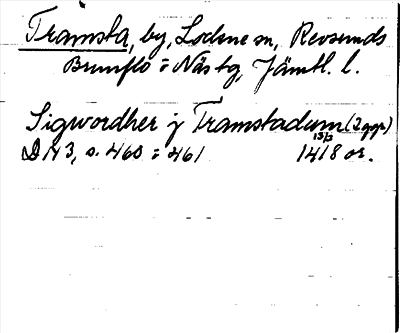 Tramsta, by, Lockne sn, Revsunds
Brunflo o Näs tg, Jämtl. l.
Sigwordher j Tramstadum (2 ggr)
13/3
D N 3, s. 460 o 461 1418 or.